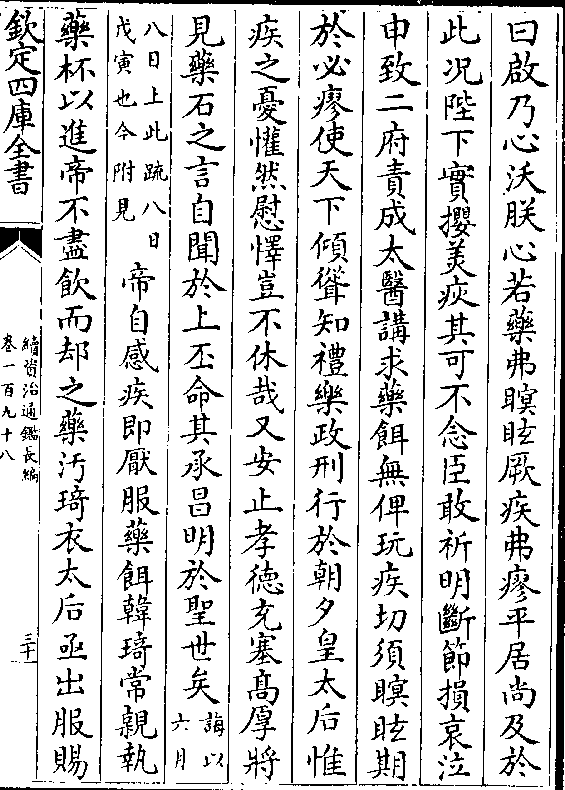 曰啟乃心沃朕心若藥弗瞑眩厥疾弗瘳平居尚及於
此况陛下實攖美疢其可不念臣敢祈明斷節損哀泣
申致二府責成太醫講求藥餌無俾玩疾切須瞑眩期
於必瘳使天下傾聳知禮樂政刑行於朝夕皇太后惟
疾之憂懽然慰懌豈不休哉又安止孝德充塞髙厚將
見藥石之言自聞於上丕命其承昌明於聖世矣誨以
六月
八日上此疏八日
戊寅也今附見
帝自感疾即厭服藥餌韓琦常親執
藥杯以進帝不盡飲而却之藥汚琦衣太后亟出服賜
欽定四庫全書
續資治通鑑長編
卷一百九十八
三十